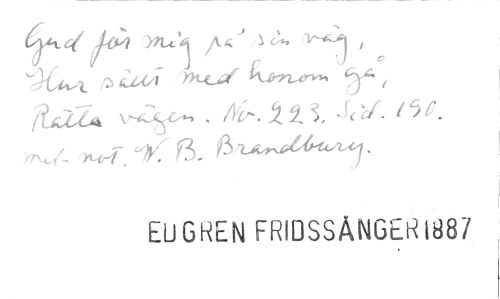 Gud för mig på sin väg,
Hur sällt med honom gå,
Rätta vägen. No. 223. Sid. 190.
mel. not. W. B. Brandbury.
EUGREN FRIDSSÅNGER 1887